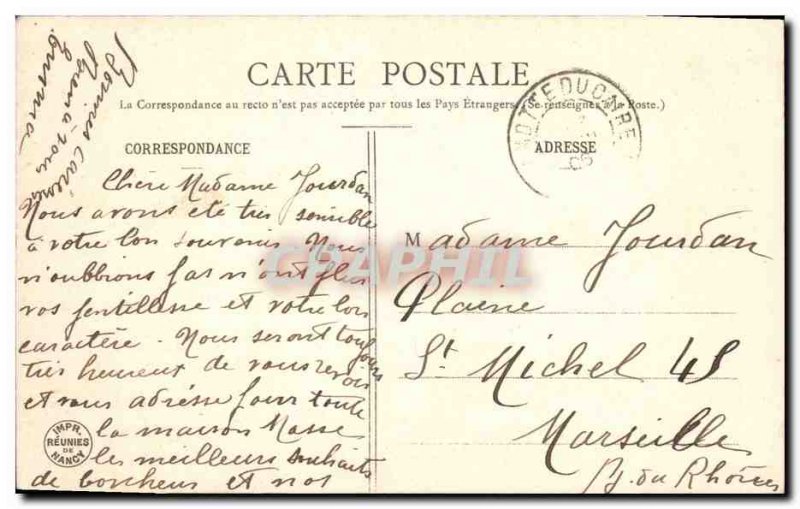 CARTE POSTALE
La Correspondance au recto n'est pas acceptée par tous les Pays Étrangers (Se renseigner à la Poste.)
CORRESPONDANCE
Chère Madame Jourdan
Nous avons été très sensible
à votre bon souvenir. Nous
n'oubbions pas n'ont plus
vos gentillesse et votre bon
caractère. Nous seront toujours
très heureux de vous revoir
et vous adresse pour toute
la maison Masse
les meilleurs souhaits
de bonheur et nos
Bonnes
bien à vous
IMPR.
RÉUNIES
DE
NANCY
MOTTE DU CAIRE
ADRESSE
Madame Jourdan
Plaine
St Michel 45
Marseille
B. du Rhône
CPAPHIL